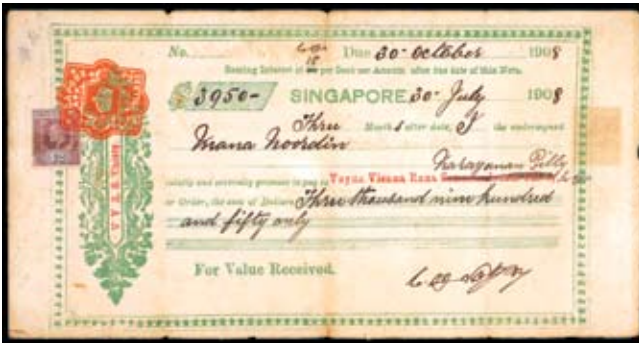 No. Due 30- October 1908
Bearing Interest at per Cent per Annum after due date of this Note.
$ 3950- SINGAPORE 30- July 1908
Three Months after date, I the undersigned
Mana Noordin
Narayanan Pilly
jointly and severally promise to pay to Vayna Viezna Rana
or Order, the sum of Dollars Three thousand nine hundred
and fifty only
For Value Received.